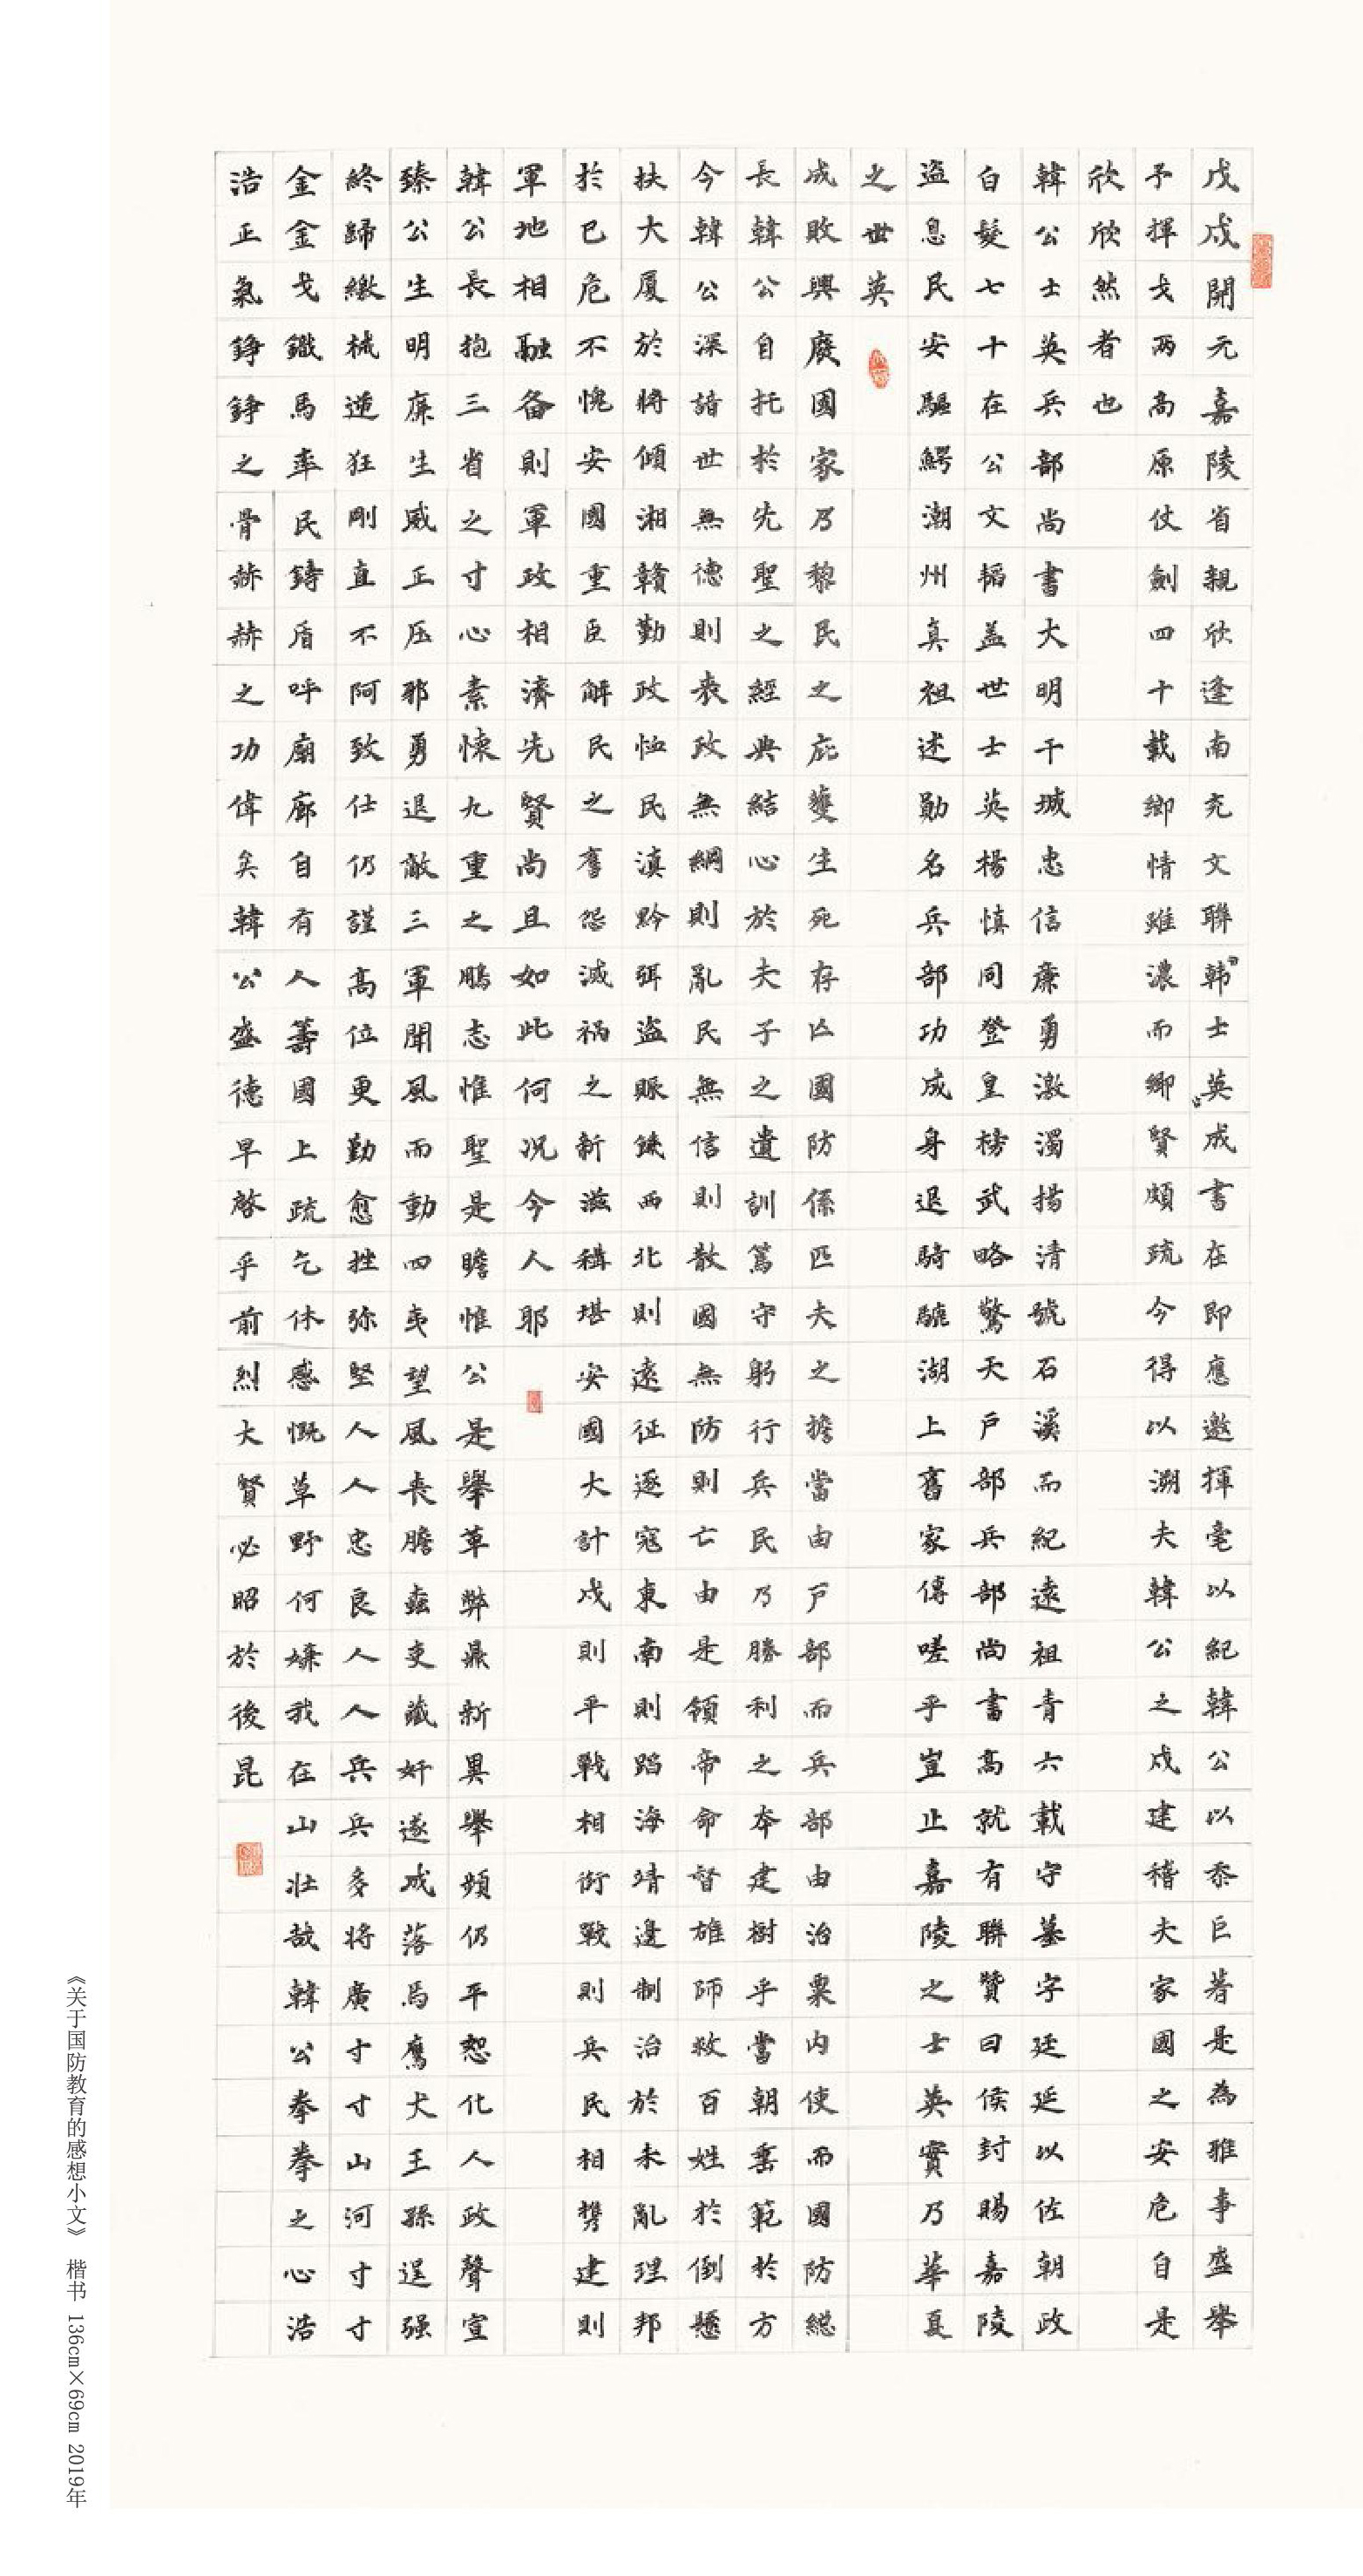 戊戌開元嘉陵省親欣逢南充文聯韩士英成書在即應邀揮毫以紀韓公以黍巨著是為雅事盛舉
予揮戈兩高原仗劍四十載鄉情雖濃而鄉賢頗疏今得以溯夫韓公之戍建稽夫家國之安危自是
欣欣然者也
韓公士英兵部尚書大明干城忠信廉勇激濁揚清號石溪而紀遠祖青六載守墓字廷延以佐朝政
白髮七十在公文韬盖世士英楊慎同登皇榜武略驚天戶部兵部尚書高就有聯贊曰侯封賜嘉陵
盜息民安驅鰐潮州真祖述勛名兵部功成身退騎驢湖上舊家傳嗟乎豈止嘉陵之士英實乃華夏
之世英
成敗興廢國家乃黎民之庇蘷生死存亾國防係匹夫之擔當由戶部而兵部由治粟内使而國防総
長韓公自托於先聖之經典結心於夫子之遺訓篤守躬行兵民乃勝利之夲建樹乎當朝垂範於方
今韓公深諳世無德則丧政無綱則亂民無信則散國無防則亡由是領帝命督雄師救百姓於倒懸
扶大厦於將傾湘贛勤政恤民滇黔弭盜賑饑西北則遠征逐寇東南則蹈海靖邊制治於未亂理邦
於已危不愧安國重臣解民之舊怨滅祸之新滋稱堪安國大計戍則平戰相衔戰則兵民相携建則
軍地相融备則軍政相濟先賢尚且如此何况今人耶
韓公長抱三省之寸心素懷九重之鵬志惟聖是瞻惟公是舉革弊鼎新異舉頻仍平恕化人政聲宣
臻公生明廉生威正压邪勇退敵三軍聞風而動四夷望風丧膽蠹吏藏奸遂成落馬鷹犬王孫逞强
終歸繳械遁狂剛直不阿致仕仍謹高位更勤愈挫弥堅人人忠良人人兵兵多將廣寸寸山河寸寸
金金戈鐵馬率民鑄盾呼廟廊自有人籌國上疏乞休感慨草野何嫌我在山壮哉韓公拳拳之心浩
浩正氣錚錚之骨赫赫之功偉矣韓公盛德早啓乎前烈大賢必昭於後昆
《关于国防教育的感想小文》 楷书 136cm×69cm 2019年